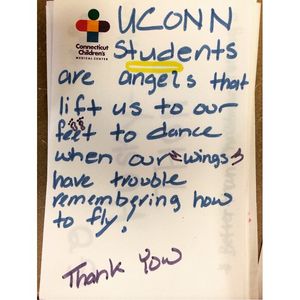 UCONN
Connecticut
Children's
MEDICAL CENTER
Students
are angels that
lift us to our
feet to dance
when our wings
have trouble
remembering how
to fly!
Thank You